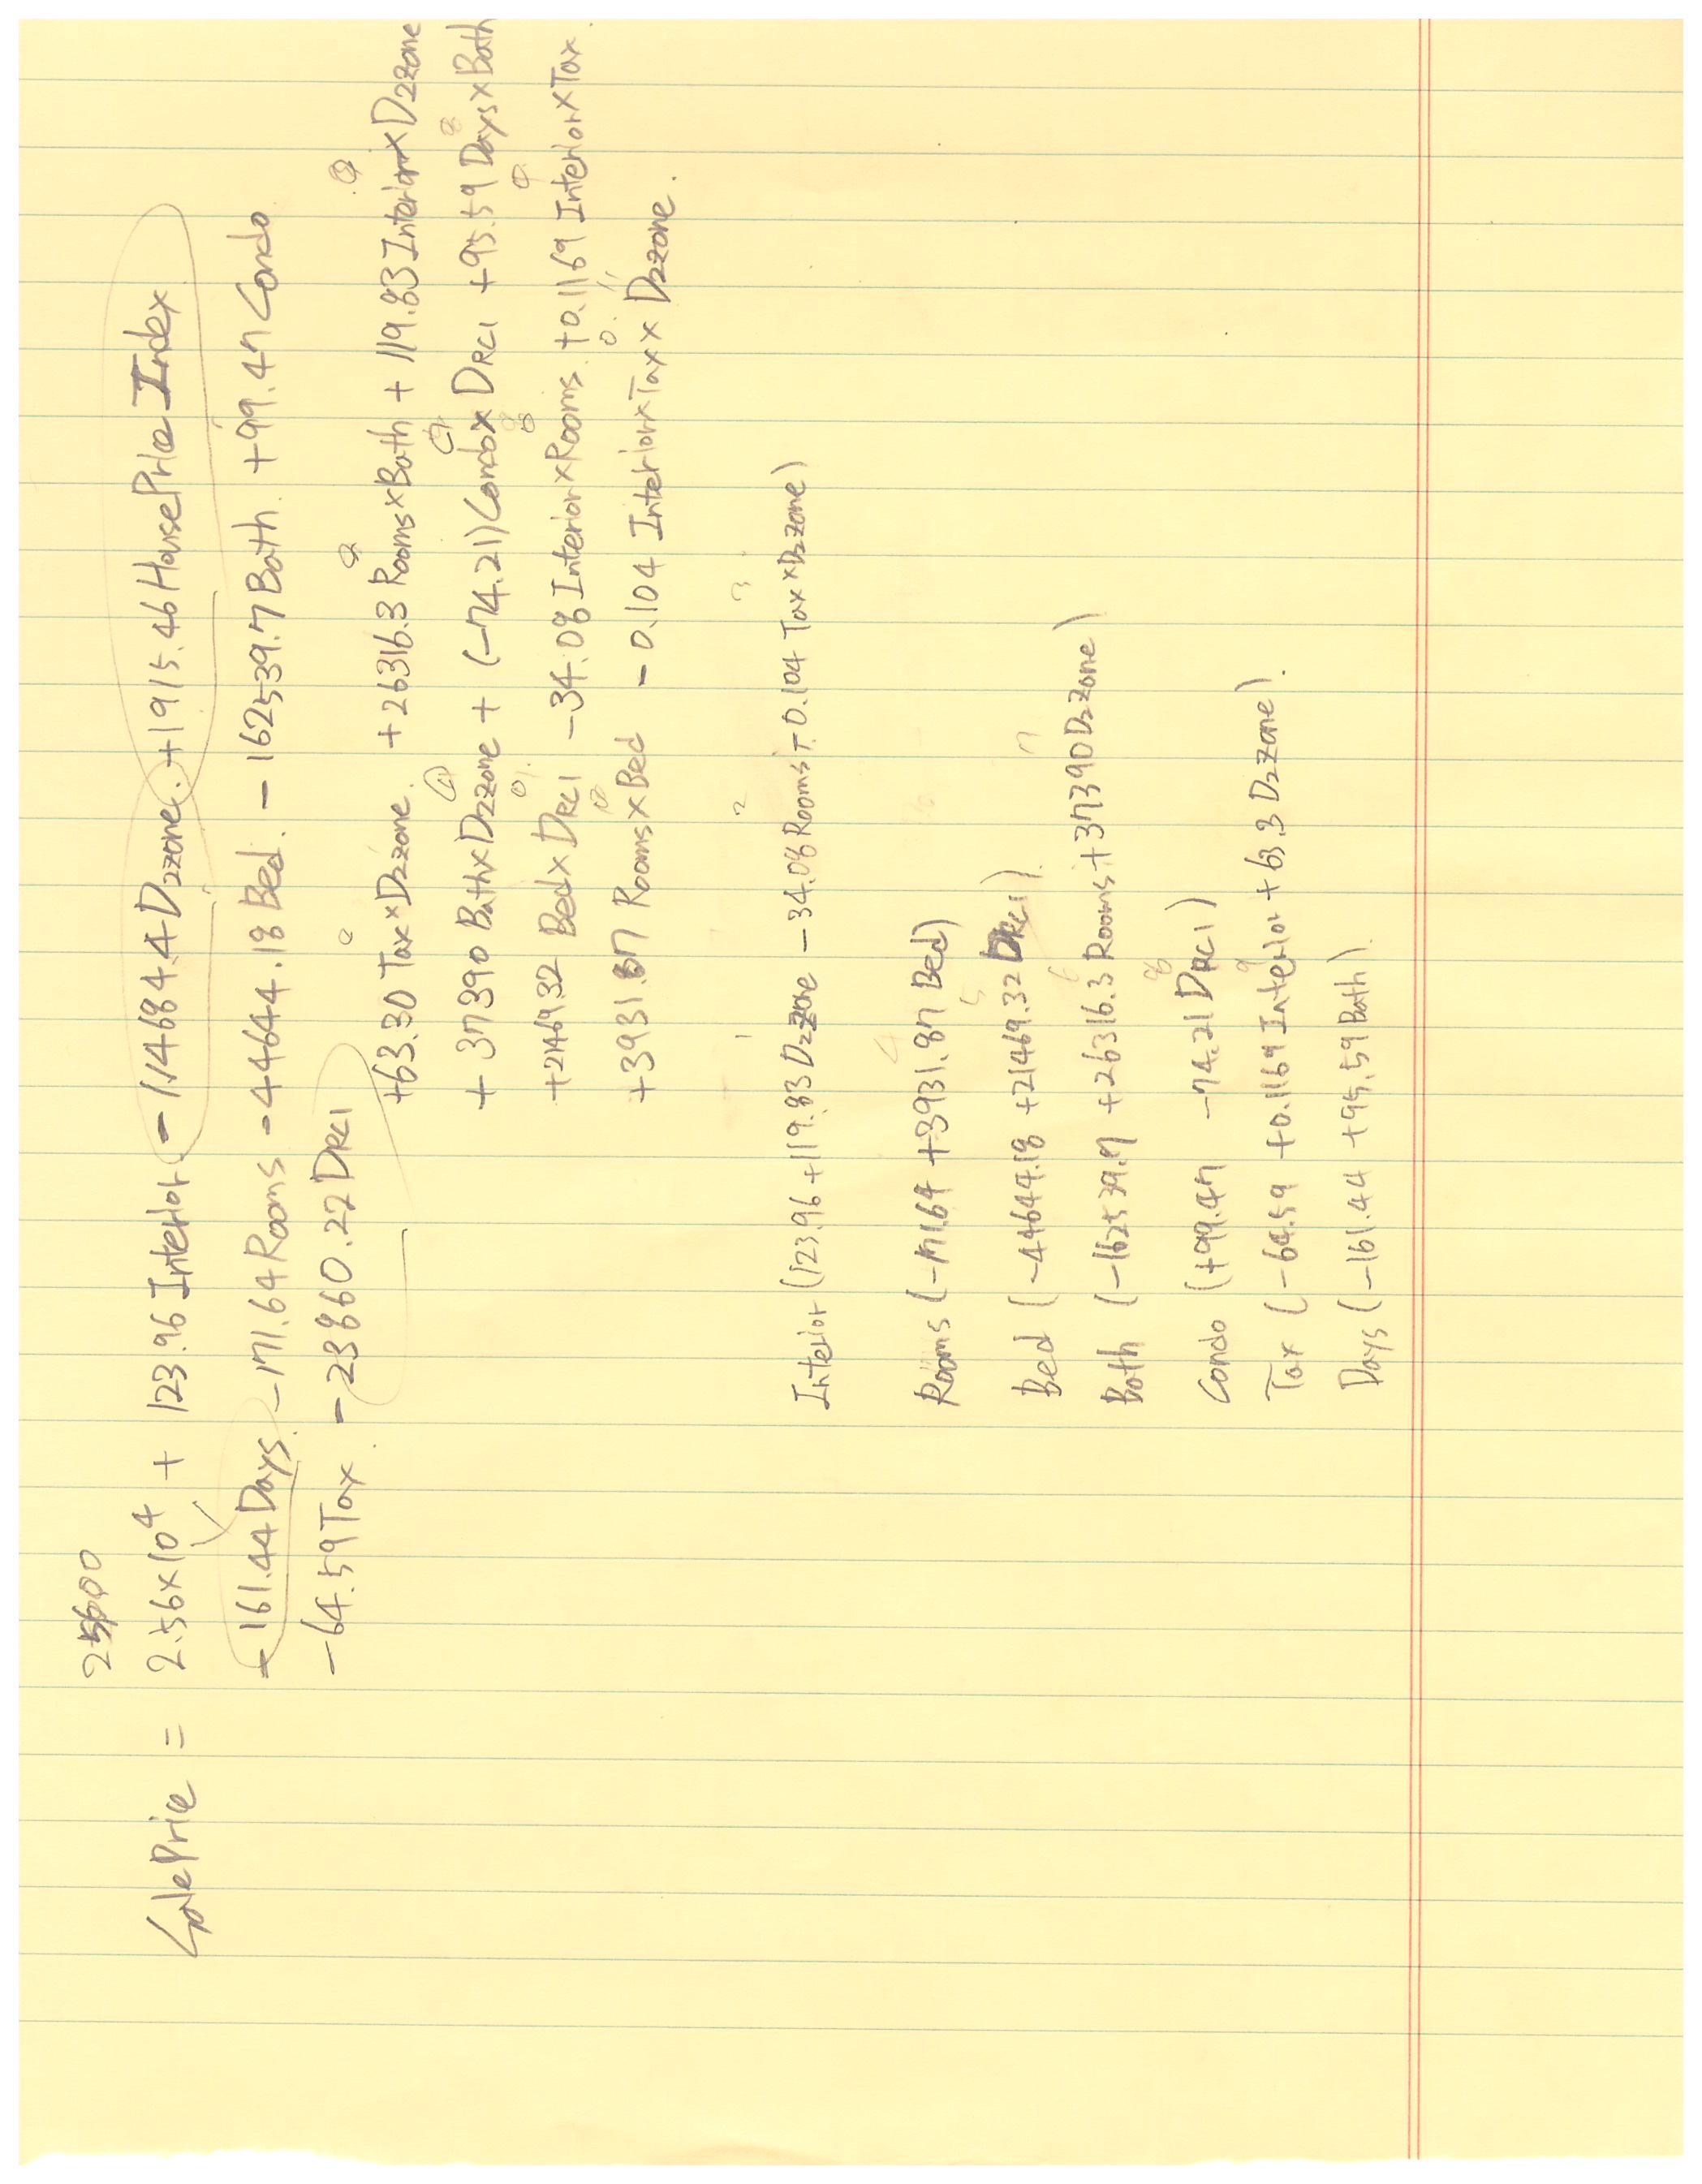 25600
SalePrice = 2.56×10⁴ + 123.96 Interior - 114684.4 D2zone. +1915.46 HousePrice Index
-161.44 Days -171.64 Rooms -44644.18 Bed. -162539.7 Bath. +99.47 Condo
-64.59 Tax -23860.22 DRC1
+63.30 Tax×D2zone. +26316.3 Rooms×Bath + 119.83 Interior×D2zone
+ 37390 Bath×D2zone + (-74.21) Condo× DRC1 +95.59 Days×Bath
+21469.32 Bed×DRC1 -34.08 Interior×Rooms +0.1169 Interior×Tax.
+3931.87 Rooms×Bed -0.104 Interior×Tax× D2zone.
1 2 3
Interior (123.96 +119.83 D2zone -34.08 Rooms - 0.104 Tax×D2zone)
4
Rooms (-171.64 +3931.87 Bed)
5
Bed (-44644.18 +21469.32 DRC1)
6 7
Bath (-162539.7 +26316.3 Rooms +37390 D2zone)
8
Condo (+99.47 -74.21 DRC1)
9
Tax (-64.59 +0.1169 Interior + 63.3 D2zone).
Days (-161.44 +95.59 Bath).